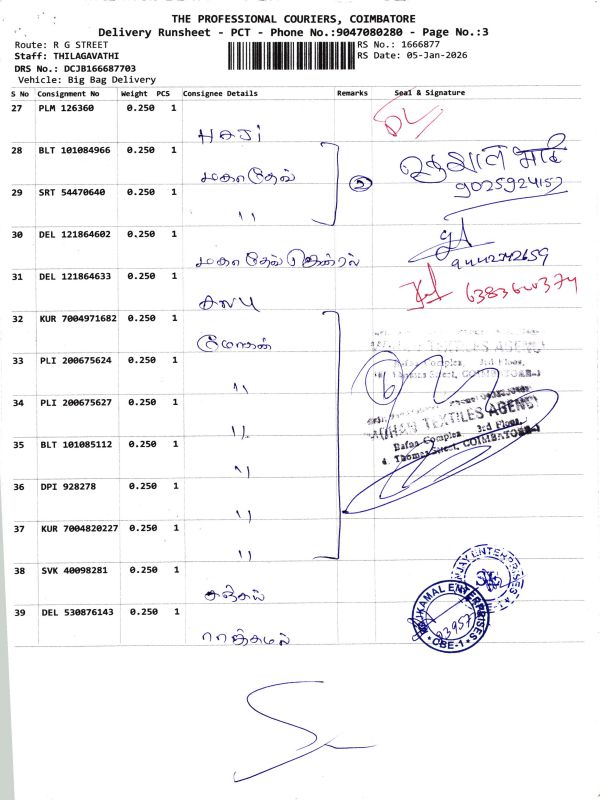 THE PROFESSIONAL COURIERS, COIMBATORE
Delivery Runsheet - PCT - Phone No.:9047080280 - Page No.:3
Route: R G STREET
RS No.: 1666877
Staff: THILAGAVATHI
RS Date: 05-Jan-2026
DRS No.: DCJB166687703
Vehicle: Big Bag Delivery
S No Consignment No Weight PCS Consignee Details Remarks Seal & Signature
27 PLM 126360 0.250 1
HAJI
28 BLT 101084966 0.250 1
மகாதேவ்
9025924157
29 SRT 54470640 0.250 1
"
30 DEL 121864602 0.250 1
மகாதேவ் ஜென்ரல்
9442742659
31 DEL 121864633 0.250 1
6383640374
32 KUR 7004971682 0.250 1
33 PLI 200675624 0.250 1
"
34 PLI 200675627 0.250 1
"
TEXTILES AGENCY
Bafna Complex, 3rd Floor,
4, Thomas Street, COIMBATORE-1
35 BLT 101085112 0.250 1
"
36 DPI 928278 0.250 1
"
37 KUR 7004820227 0.250 1
"
38 SVK 40098281 0.250 1
சஞ்சய்
39 DEL 530876143 0.250 1
ராஜ்கமல்
ENTERPRISES
CBE-1
23957